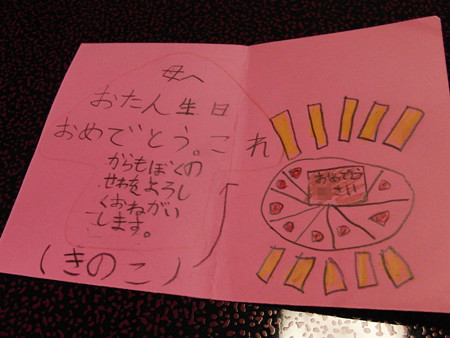 母へ
おたん生日
おめでとう。これ
からもぼくの
せわをよろし
くおねがい
します。
(きのこ)
おめでとう